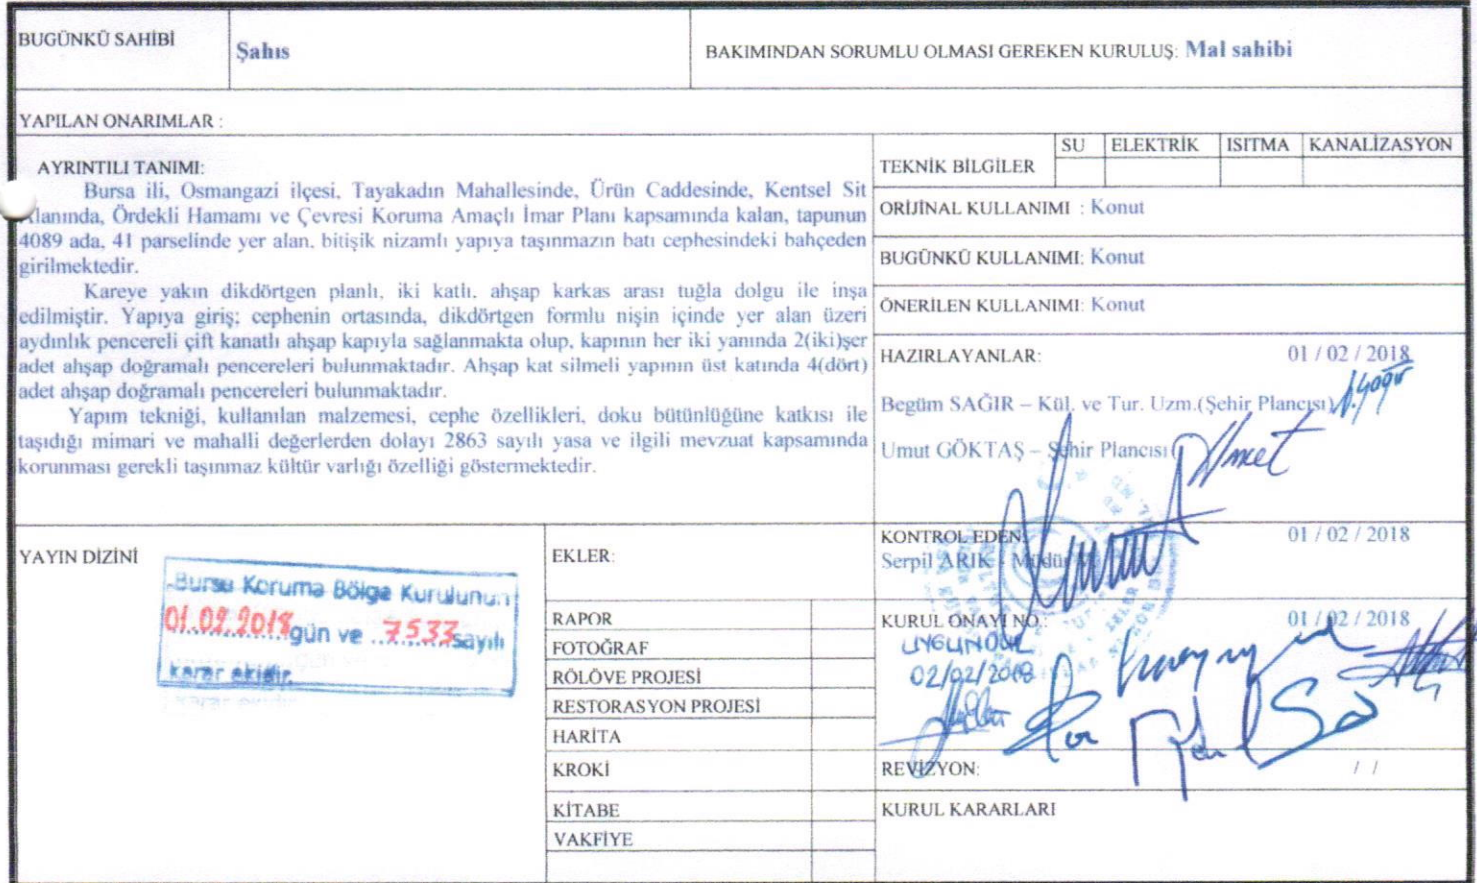 BUGÜNKÜ SAHİBİ
Şahıs
BAKIMINDAN SORUMLU OLMASI GEREKEN KURULUŞ: Mal sahibi
YAPILAN ONARIMLAR :
AYRINTILI TANIMI:
Bursa ili, Osmangazi ilçesi, Tayakadın Mahallesinde, Ürün Caddesinde, Kentsel Sit
Alanında, Ördekli Hamamı ve Çevresi Koruma Amaçlı İmar Planı kapsamında kalan, tapunun
4089 ada, 41 parselinde yer alan, bitişik nizamlı yapıya taşınmazın batı cephesindeki bahçeden
girilmektedir.
Kareye yakın dikdörtgen planlı, iki katlı, ahşap karkas arası tuğla dolgu ile inşa
edilmiştir. Yapıya giriş; cephenin ortasında, dikdörtgen formlu nişin içinde yer alan üzeri
aydınlık pencereli çift kanatlı ahşap kapıyla sağlanmakta olup, kapının her iki yanında 2(iki)şer
adet ahşap doğramalı pencereleri bulunmaktadır. Ahşap kat silmeli yapının üst katında 4(dört)
adet ahşap doğramalı pencereleri bulunmaktadır.
Yapım tekniği, kullanılan malzemesi, cephe özellikleri, doku bütünlüğüne katkısı ile
taşıdığı mimari ve mahalli değerlerden dolayı 2863 sayılı yasa ve ilgili mevzuat kapsamında
korunması gerekli taşınmaz kültür varlığı özelliği göstermektedir.
TEKNİK BİLGİLER
SU ELEKTRİK ISITMA KANALİZASYON
ORİJİNAL KULLANIMI : Konut
BUGÜNKÜ KULLANIMI: Konut
ÖNERİLEN KULLANIMI: Konut
HAZIRLAYANLAR: 01 / 02 / 2018
Begüm SAĞIR – Kül. ve Tur. Uzm.(Şehir Plancısı)
Umut GÖKTAŞ – Şehir Plancısı
YAYIN DİZİNİ
Bursa Koruma Bölge Kurulunun
01.02.2018 gün ve 7533 sayılı
karar ekidir.
EKLER:
RAPOR
FOTOĞRAF
RÖLÖVE PROJESİ
RESTORASYON PROJESİ
HARİTA
KROKİ
KİTABE
VAKFİYE
KONTROL EDEN: 01 / 02 / 2018
Serpil ARIK - Müdür
KURUL ONAYI NO.: 01 / 02 / 2018
UYGUNDUR
02/02/2018
REVİZYON: / /
KURUL KARARLARI